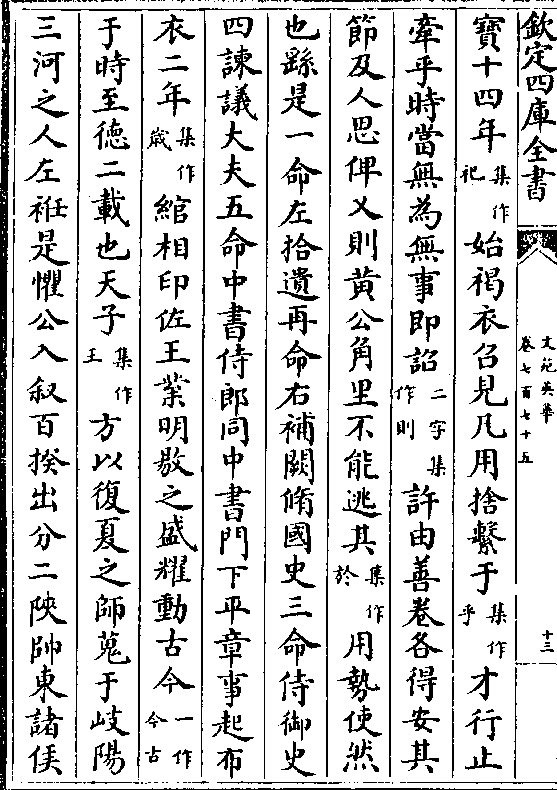 欽定四庫全書
文苑英華
卷七百七十五
十三
寳十四年集作祀始褐衣召見凡用捨繫于集作乎才行止
牽乎時當無為無事即詔二字集作則許由善卷各得安其
節及人思俾乂則黄公角里不能逃其集作於用勢使然
也繇是一命左拾遺再命右補闕脩國史三命侍御史
四諫議大夫五命中書侍郎同中書門下平章事起布
衣二年集作歳綰相印佐王業明敭之盛耀動古今一作今古
于時至徳二載也天子集作王方以復夏之師蒐于岐陽
三河之人左袵是懼公入叙百揆出分二陜帥東諸侯